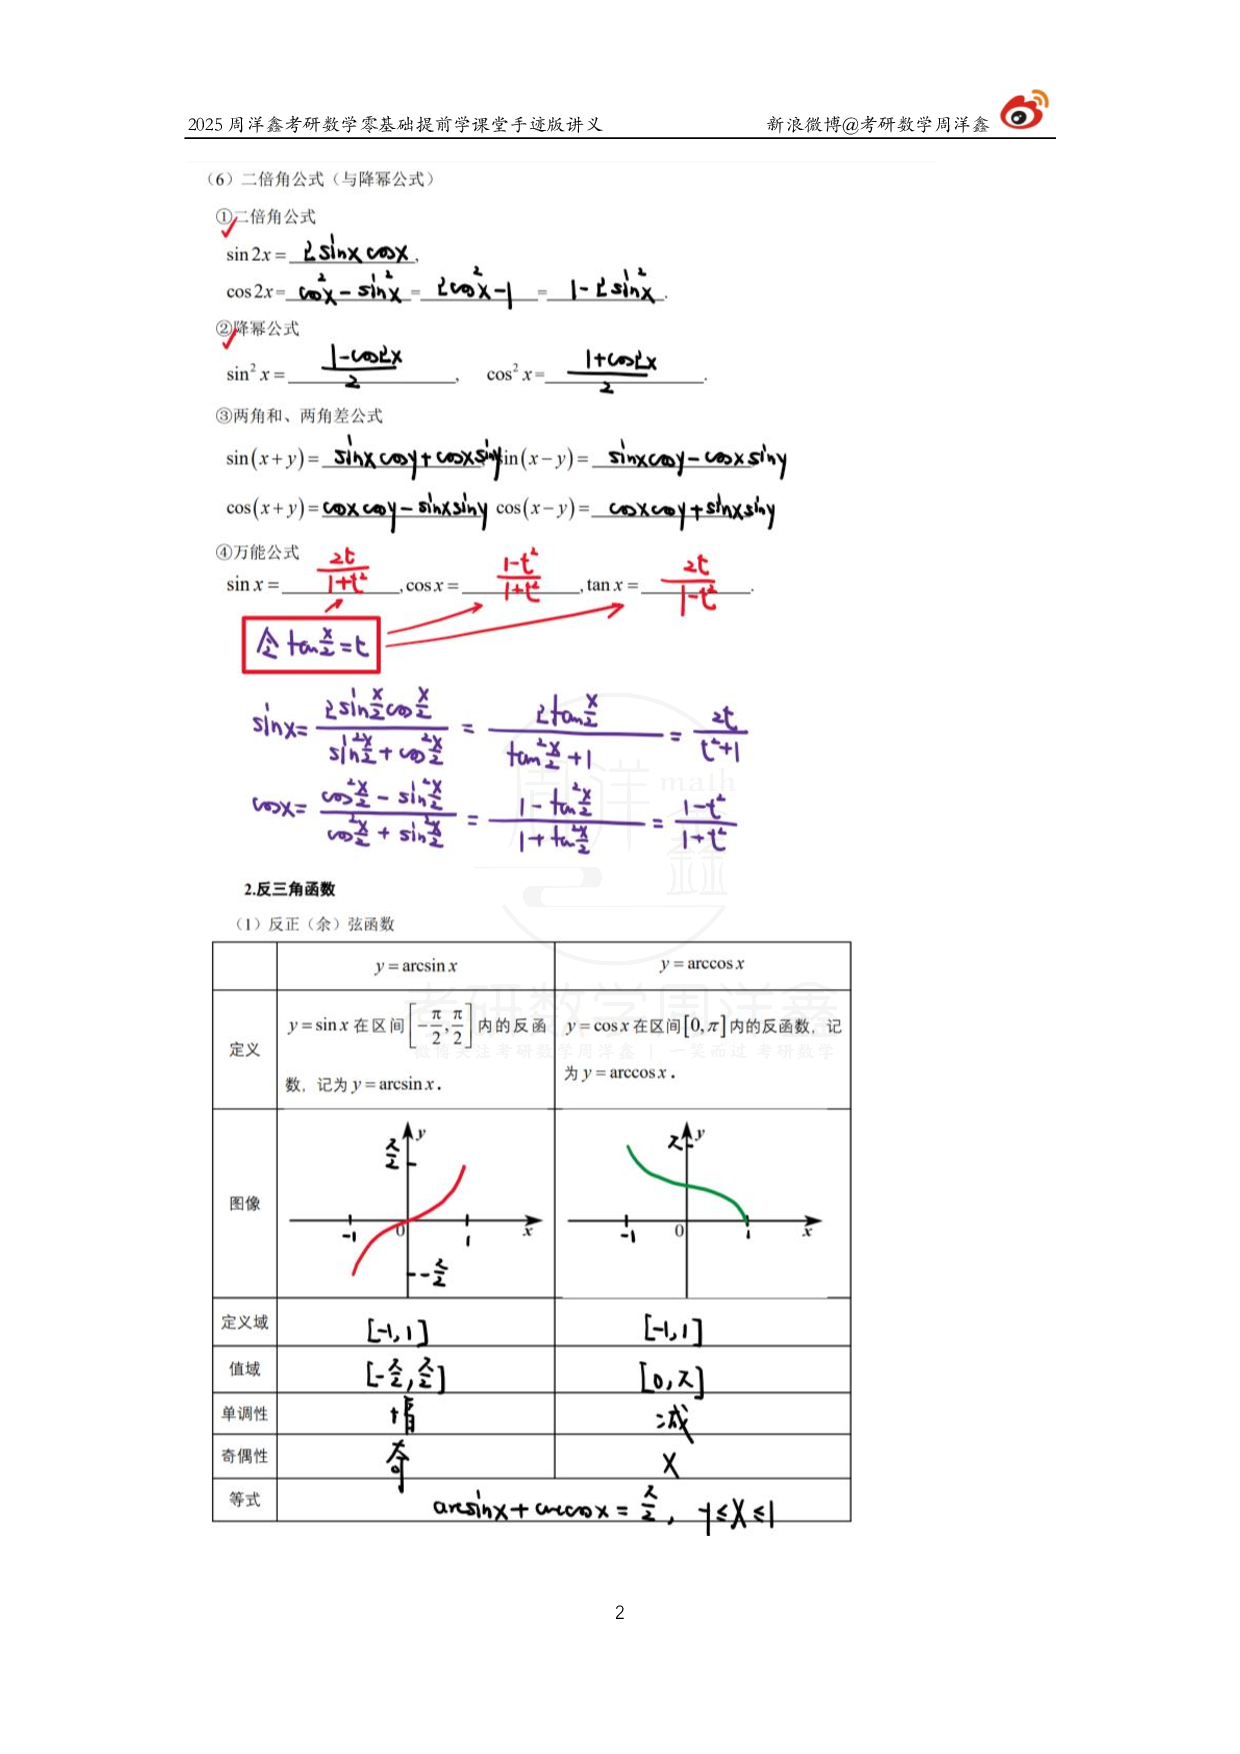 2025周洋鑫考研数学零基础提前学课堂手迹版讲义 新浪微博@考研数学周洋鑫
（6）二倍角公式（与降幂公式）
①二倍角公式
sin2x= 2sinxcosx.
cos2x= cos²x-sin²x = 2cos²x-1 = 1-2sin²x.
②降幂公式
sin²x= (1-cos2x)/2, cos²x= (1+cos2x)/2.
③两角和、两角差公式
sin(x+y)= sinxcosy+cosxsiny sin(x-y)= sinxcosy-cosxsiny
cos(x+y)= cosxcosy-sinxsiny cos(x-y)= cosxcosy+sinxsiny
④万能公式
sinx= 2t/(1+t²), cosx= (1-t²)/(1+t²), tanx= 2t/(1-t²).
令 tan x/2 = t
sinx= (2sin x/2 cos x/2)/(sin² x/2 + cos² x/2) = (2tan x/2)/(tan² x/2 +1) = 2t/(t²+1)
cosx= (cos² x/2 - sin² x/2)/(cos² x/2 + sin² x/2) = (1-tan² x/2)/(1+tan² x/2) = (1-t²)/(1+t²)
周洋鑫 math
2.反三角函数
（1）反正（余）弦函数
y=arcsinx y=arccosx
考研数学周洋鑫
微博关注考研数学周洋鑫 | 一笑而过 考研数学
定义
y=sinx在区间[-π/2, π/2]内的反函
数，记为y=arcsinx.
y=cosx在区间[0,π]内的反函数，记
为y=arccosx.
图像
π/2 y
-1 0 1 x
-π/2
π y
-1 0 1 x
定义域 [-1,1] [-1,1]
值域 [-π/2, π/2] [0,π]
单调性 增 减
奇偶性 奇 X
等式 arcsinx+arccosx= π/2, -1≤x≤1
2